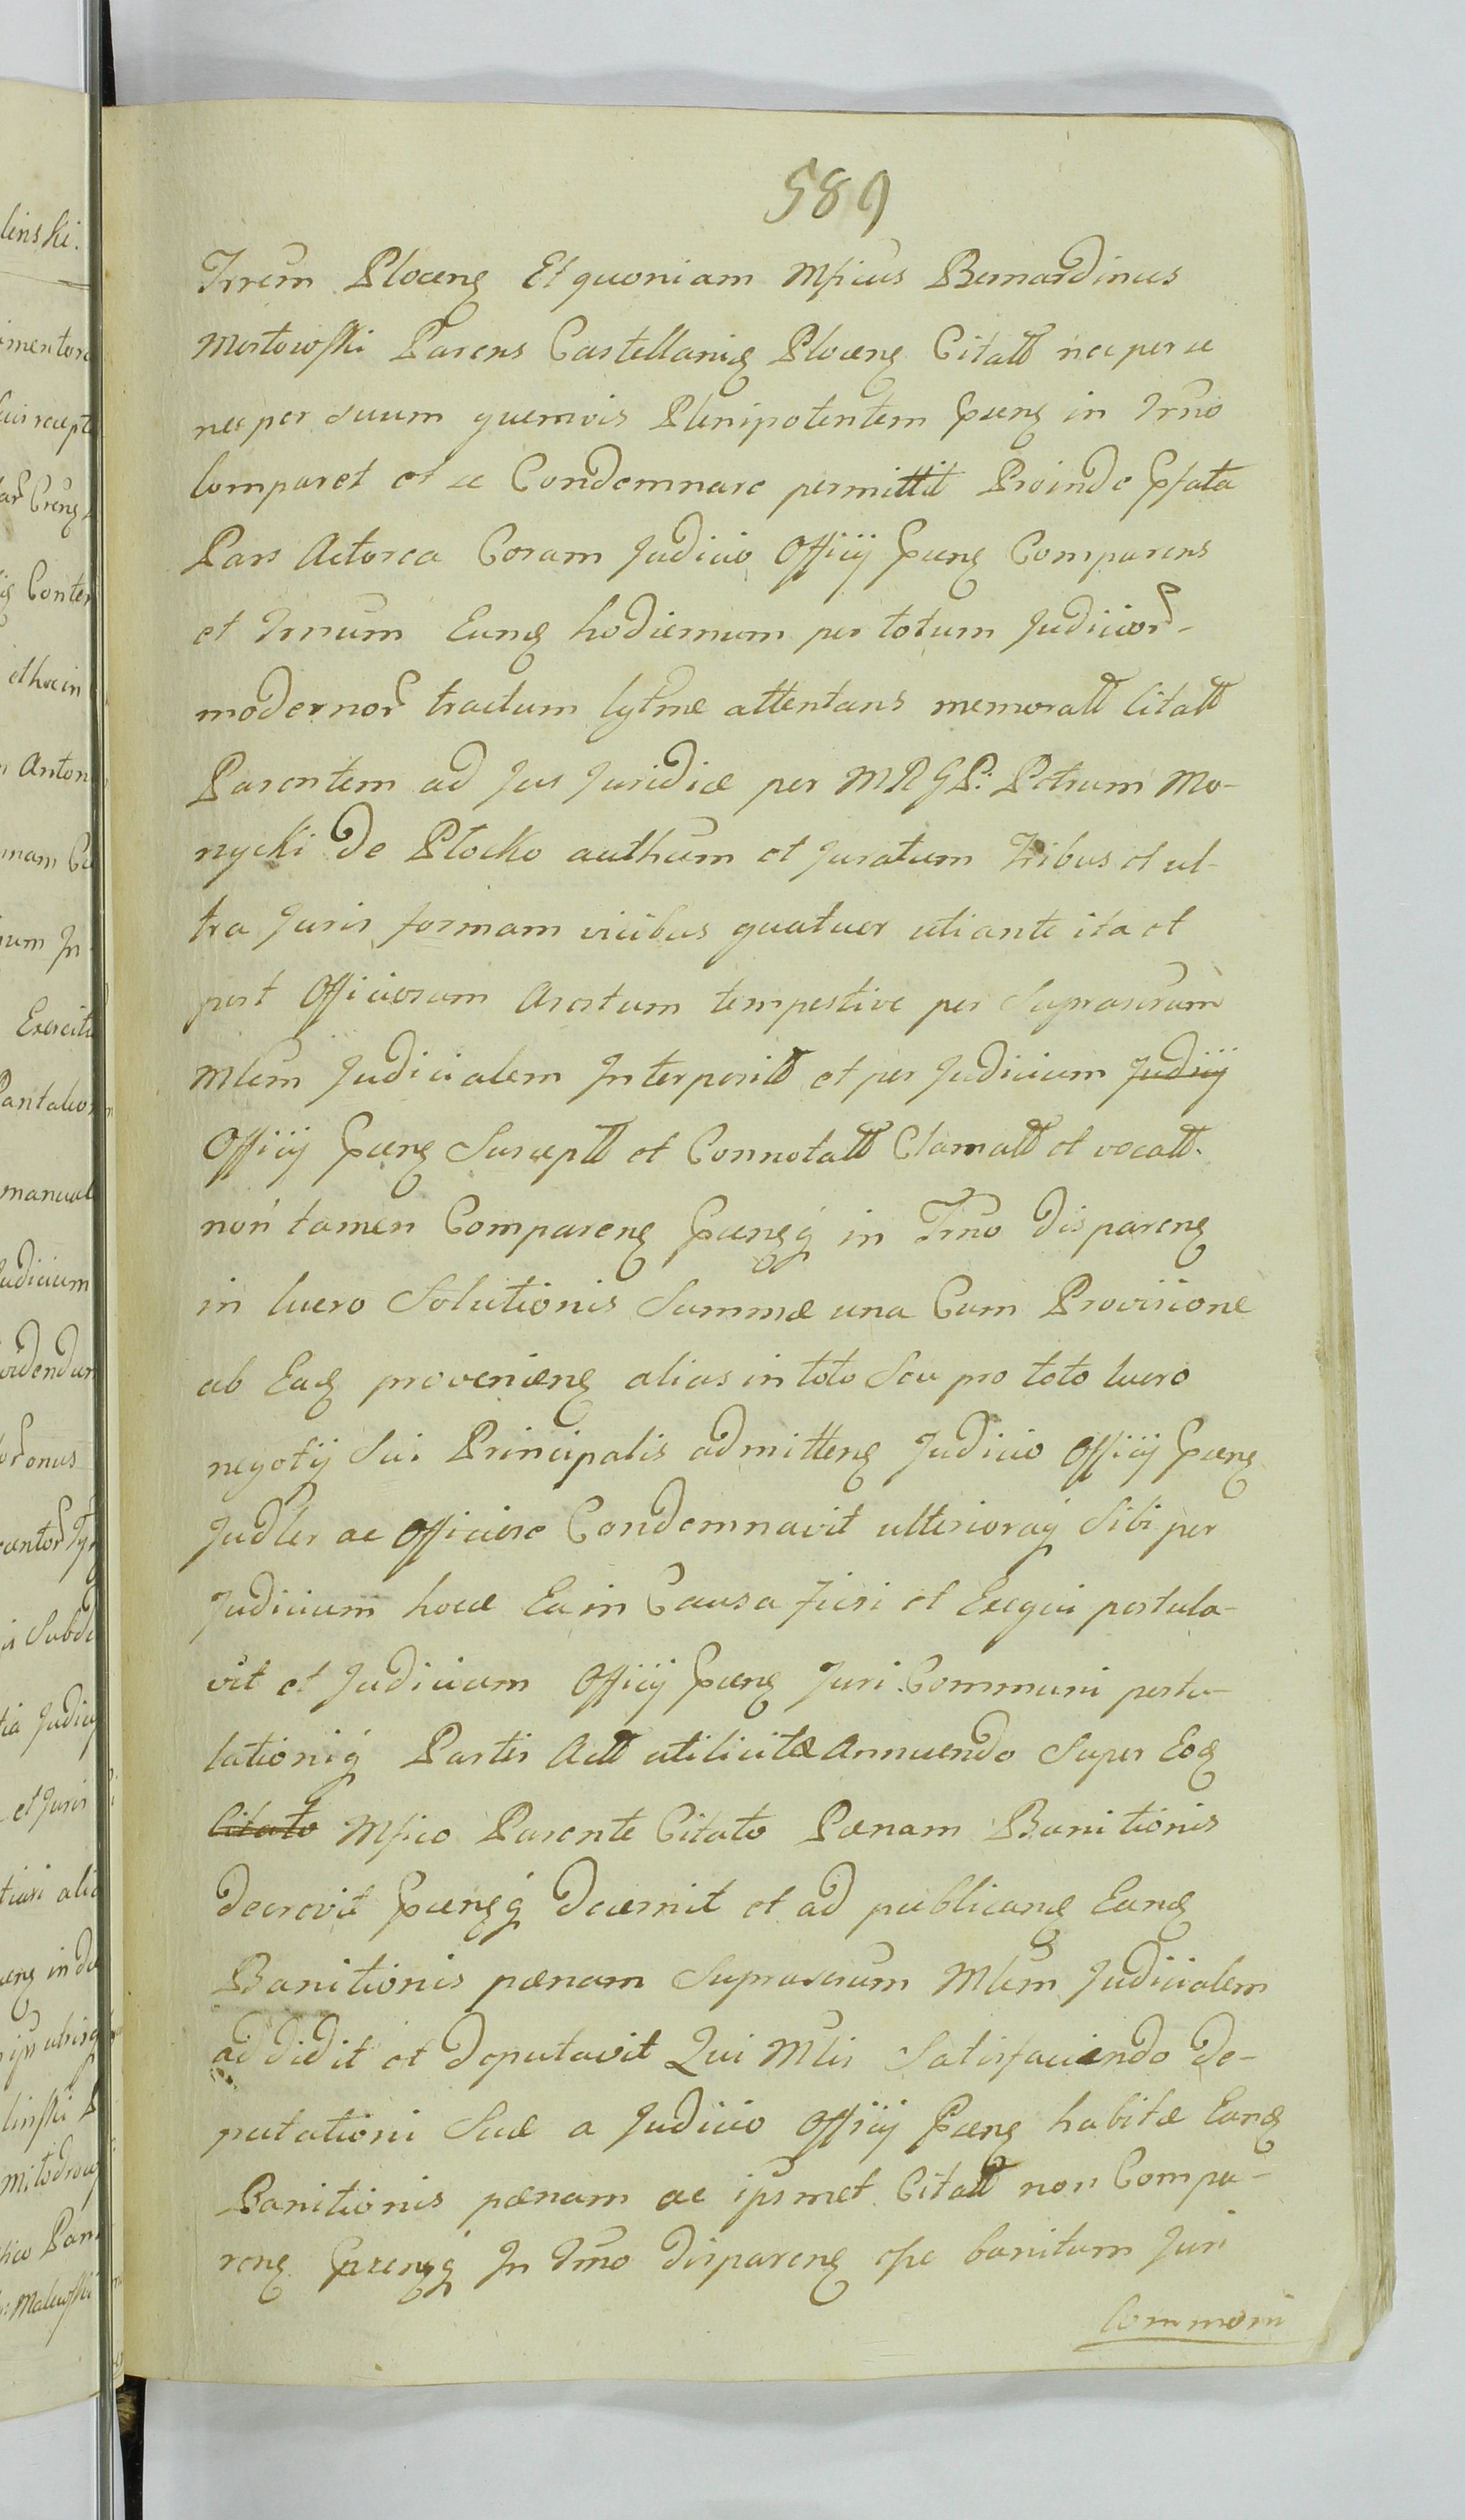 589
Trrem Plocens Et quoniam Mficus Bernardinus
Mostowski Parens Castellanis Plocens Citatt nec per se
nec per Suum quemvis Plenipotentem pñens in Trno
Comparet et se Condemnare permittit Proinde pfata
Pars Actorea Coram Judicio Officij pñens Comparens
et Trnum Eund hodiernum per totum Judicior
modernor tractum lgtme attentans memoratt Citatt
Parentem ad Jus Juridice per MRGP: Petrum Mo-
nycki de Plocko authum et Juratum Tribus et ul-
tra Juris formam vicibus quatuor uti ante ita et
post Officiosum Arestum tempestive per Suprascrum
Mlem Judicialem Interposit et per Judicium Judicij
Officij pñens Susceptt et Connotatt Clamatt et vocatt.
non tamen Comparens pñensq in Trno disparens
in lucro Solutionis Summæ una Cum Provisione
ab Ead proveniens alias in toto Seu pro toto lucro
negotij Sui Principalis admittens Judicio Officij pñens
Judler ac Officiose Condemnavit ulterioraq Sibi per
Judicium hocce Ea in Causa fieri et Exequi postula-
vit et Judicium Officij pñens Juri Communi postu-
lationiq Partis Actt utilicitæ Annuendo Super Eod
Citato Mfico Parente Citato Pænam Banitionis
decrevit pñensq decernit et ad publicand Eand
Banitionis pænam Suprascrum Mlem Judicialem
addidit et deputavit Qui Mlis Satisfaciendo de-
putationi Suæ a Judicio Officij Pñens habitæ Eand
Banitionis pænam ac ipsmet Citatt non Compa-
rens pñensq In Trno disparens esse banitum Juri
Communi
linski.